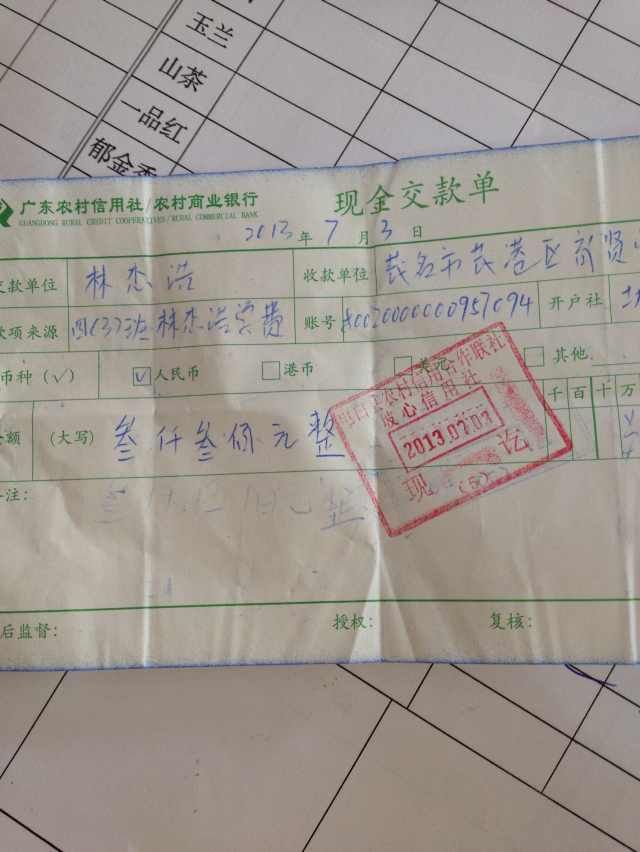 玉兰
山茶
一品红
郁金香
广东农村信用社/农村商业银行
GUANGDONG RURAL CREDIT COOPERATIVES/RURAL COMMERCIAL BANK
现金交款单
2013年7月3日
交款单位 林杰浩 收款单位 茂名市茂港区
款项来源 四(3)班林杰浩学费 账号 开户社
币种(√) ☑人民币 □港币 □美元 □其他
千百十万
金额 (大写) 叁仟叁佰元整
农村信用合作联社
信用社
2013.07.03
现 讫
备注:
后监督: 授权: 复核: